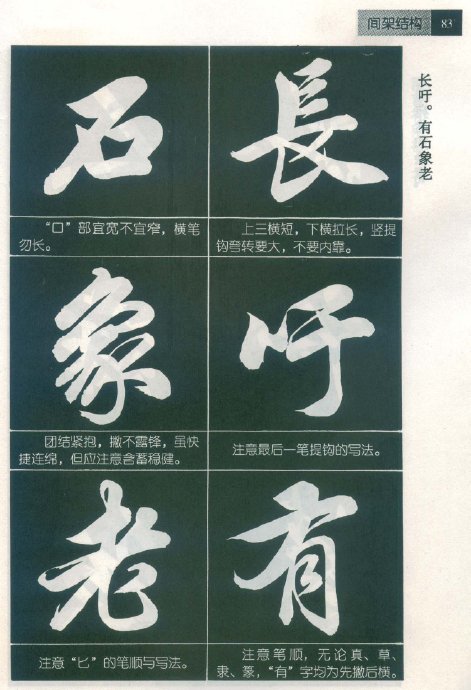 间架结构 83
长吁。有石象老
長
上三横短，下横拉长，竖提
钩弯转要大，不要内靠。
吁
注意最后一笔提钩的写法。
有
注意笔顺，无论真、草、
隶、篆，“有”字均为先撇后横。
石
“口”部宜宽不宜窄，横笔
勿长。
象
团结紧抱，撇不露锋，虽快
捷连绵，但应注意含蓄稳健。
老
注意“匕”的笔顺与写法。